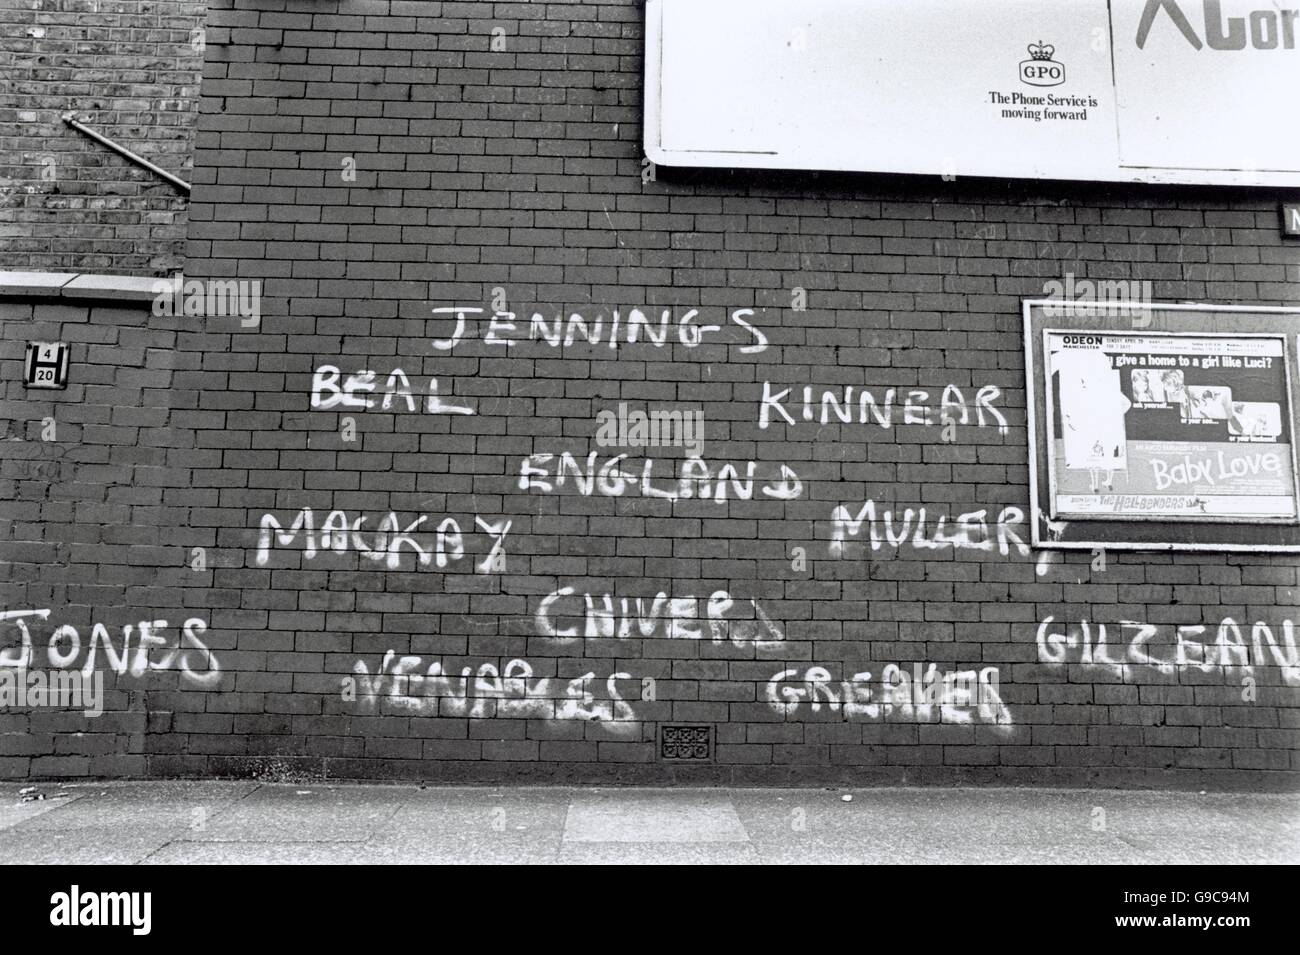 GPO
The Phone Service is
moving forward
4
20
JENNINGS
BEAL KINNEAR
ENGLAND
MACKAY MULLERY
CHIVERS
JONES GILZEAN
VENABLES GREAVES
ODEON
MANCHESTER
give a home to a girl like Luci?
ask yourself...
or your son...
Baby Love
THE HELLBENDERS
alamy
Image ID: G9C94M
www.alamy.com